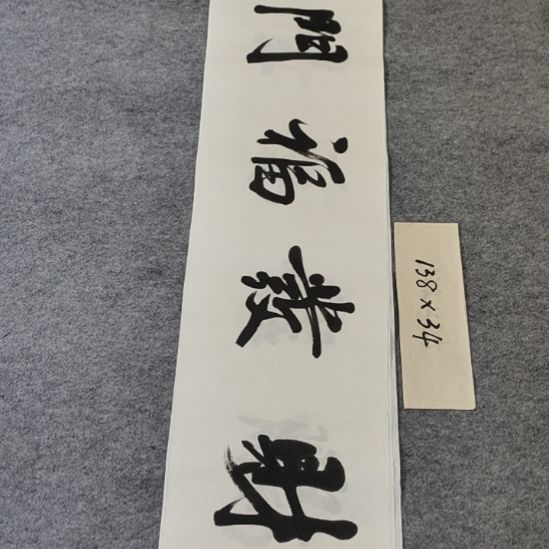 財發福門
138×34